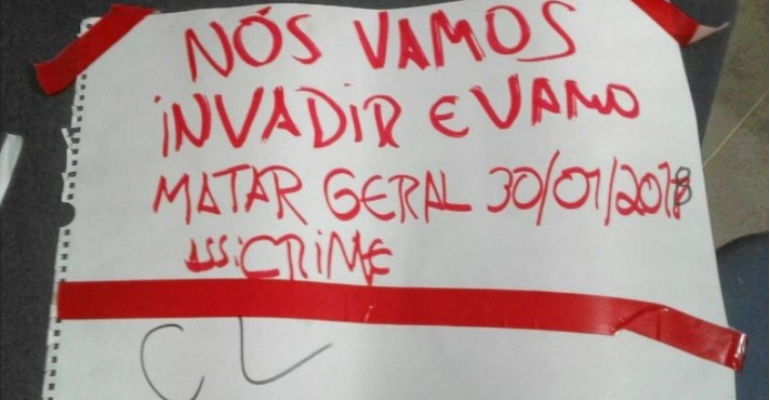 NÓS VAMOS
iNVADIR E VAMO
MATAR GERAL 30/01/2018
ASSiCRiME
CL